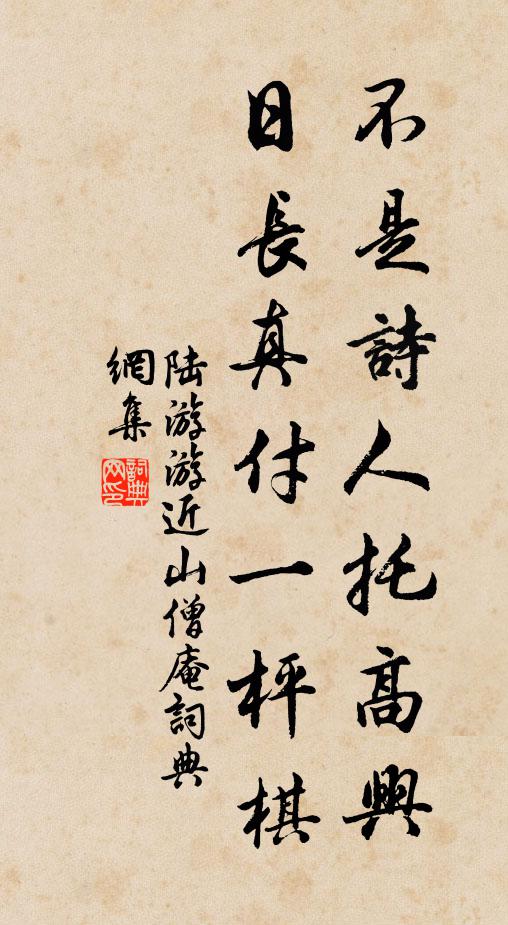 不是詩人托高興
日長真付一枰棋
陆游游近山僧庵詞典
網集
詞典
网印